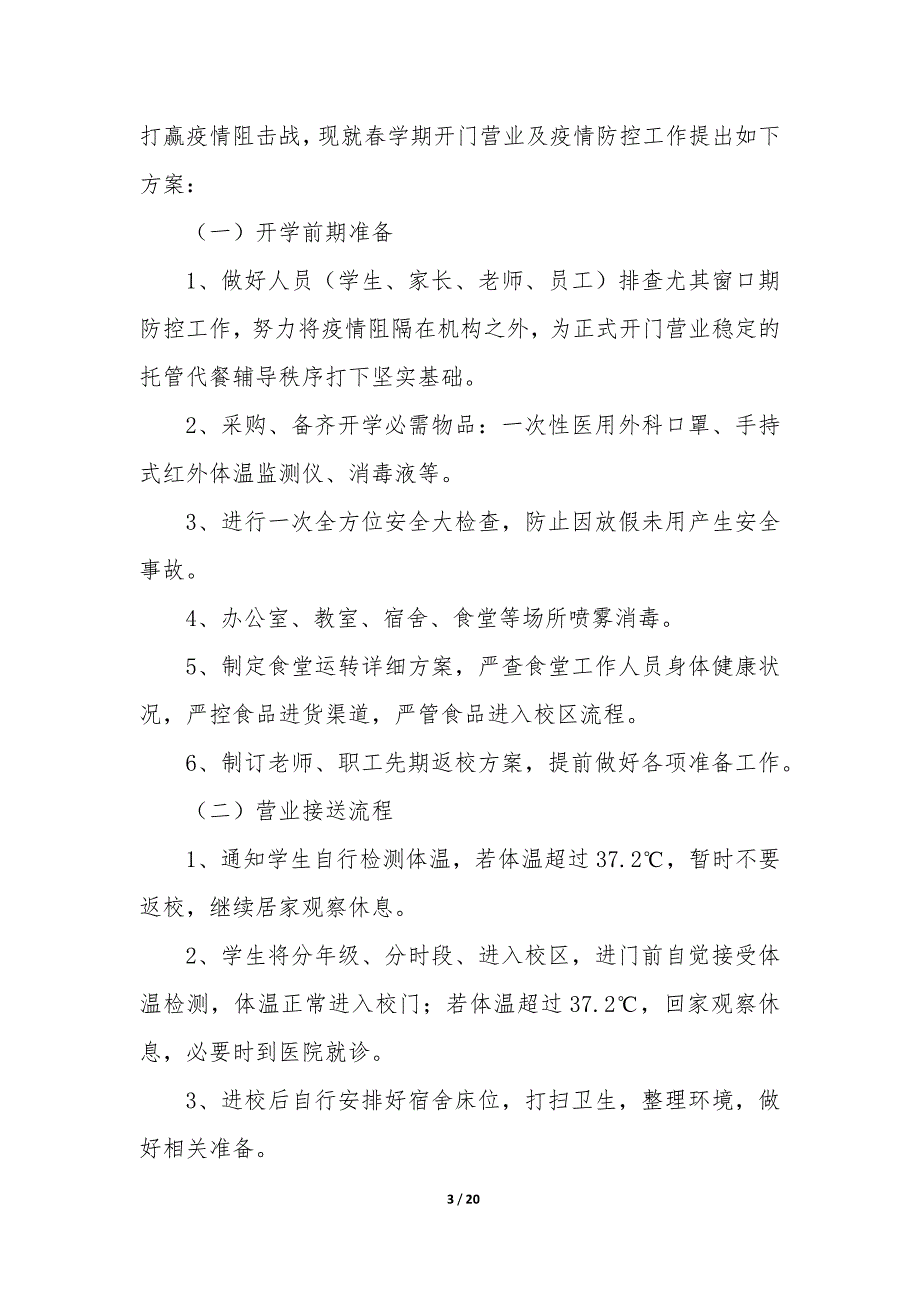 打赢疫情阻击战，现就春学期开门营业及疫情防控工作提出如下
方案：
（一）开学前期准备
1、做好人员（学生、家长、老师、员工）排查尤其窗口期
防控工作，努力将疫情阻隔在机构之外，为正式开门营业稳定的
托管代餐辅导秩序打下坚实基础。
2、采购、备齐开学必需物品：一次性医用外科口罩、手持
式红外体温监测仪、消毒液等。
3、进行一次全方位安全大检查，防止因放假未用产生安全
事故。
4、办公室、教室、宿舍、食堂等场所喷雾消毒。
5、制定食堂运转详细方案，严查食堂工作人员身体健康状
况，严控食品进货渠道，严管食品进入校区流程。
6、制订老师、职工先期返校方案，提前做好各项准备工作。
（二）营业接送流程
1、通知学生自行检测体温，若体温超过 37.2℃，暂时不要
返校，继续居家观察休息。
2、学生将分年级、分时段、进入校区，进门前自觉接受体
温检测，体温正常进入校门；若体温超过 37.2℃，回家观察休
息，必要时到医院就诊。
3、进校后自行安排好宿舍床位，打扫卫生，整理环境，做
好相关准备。
3 / 20